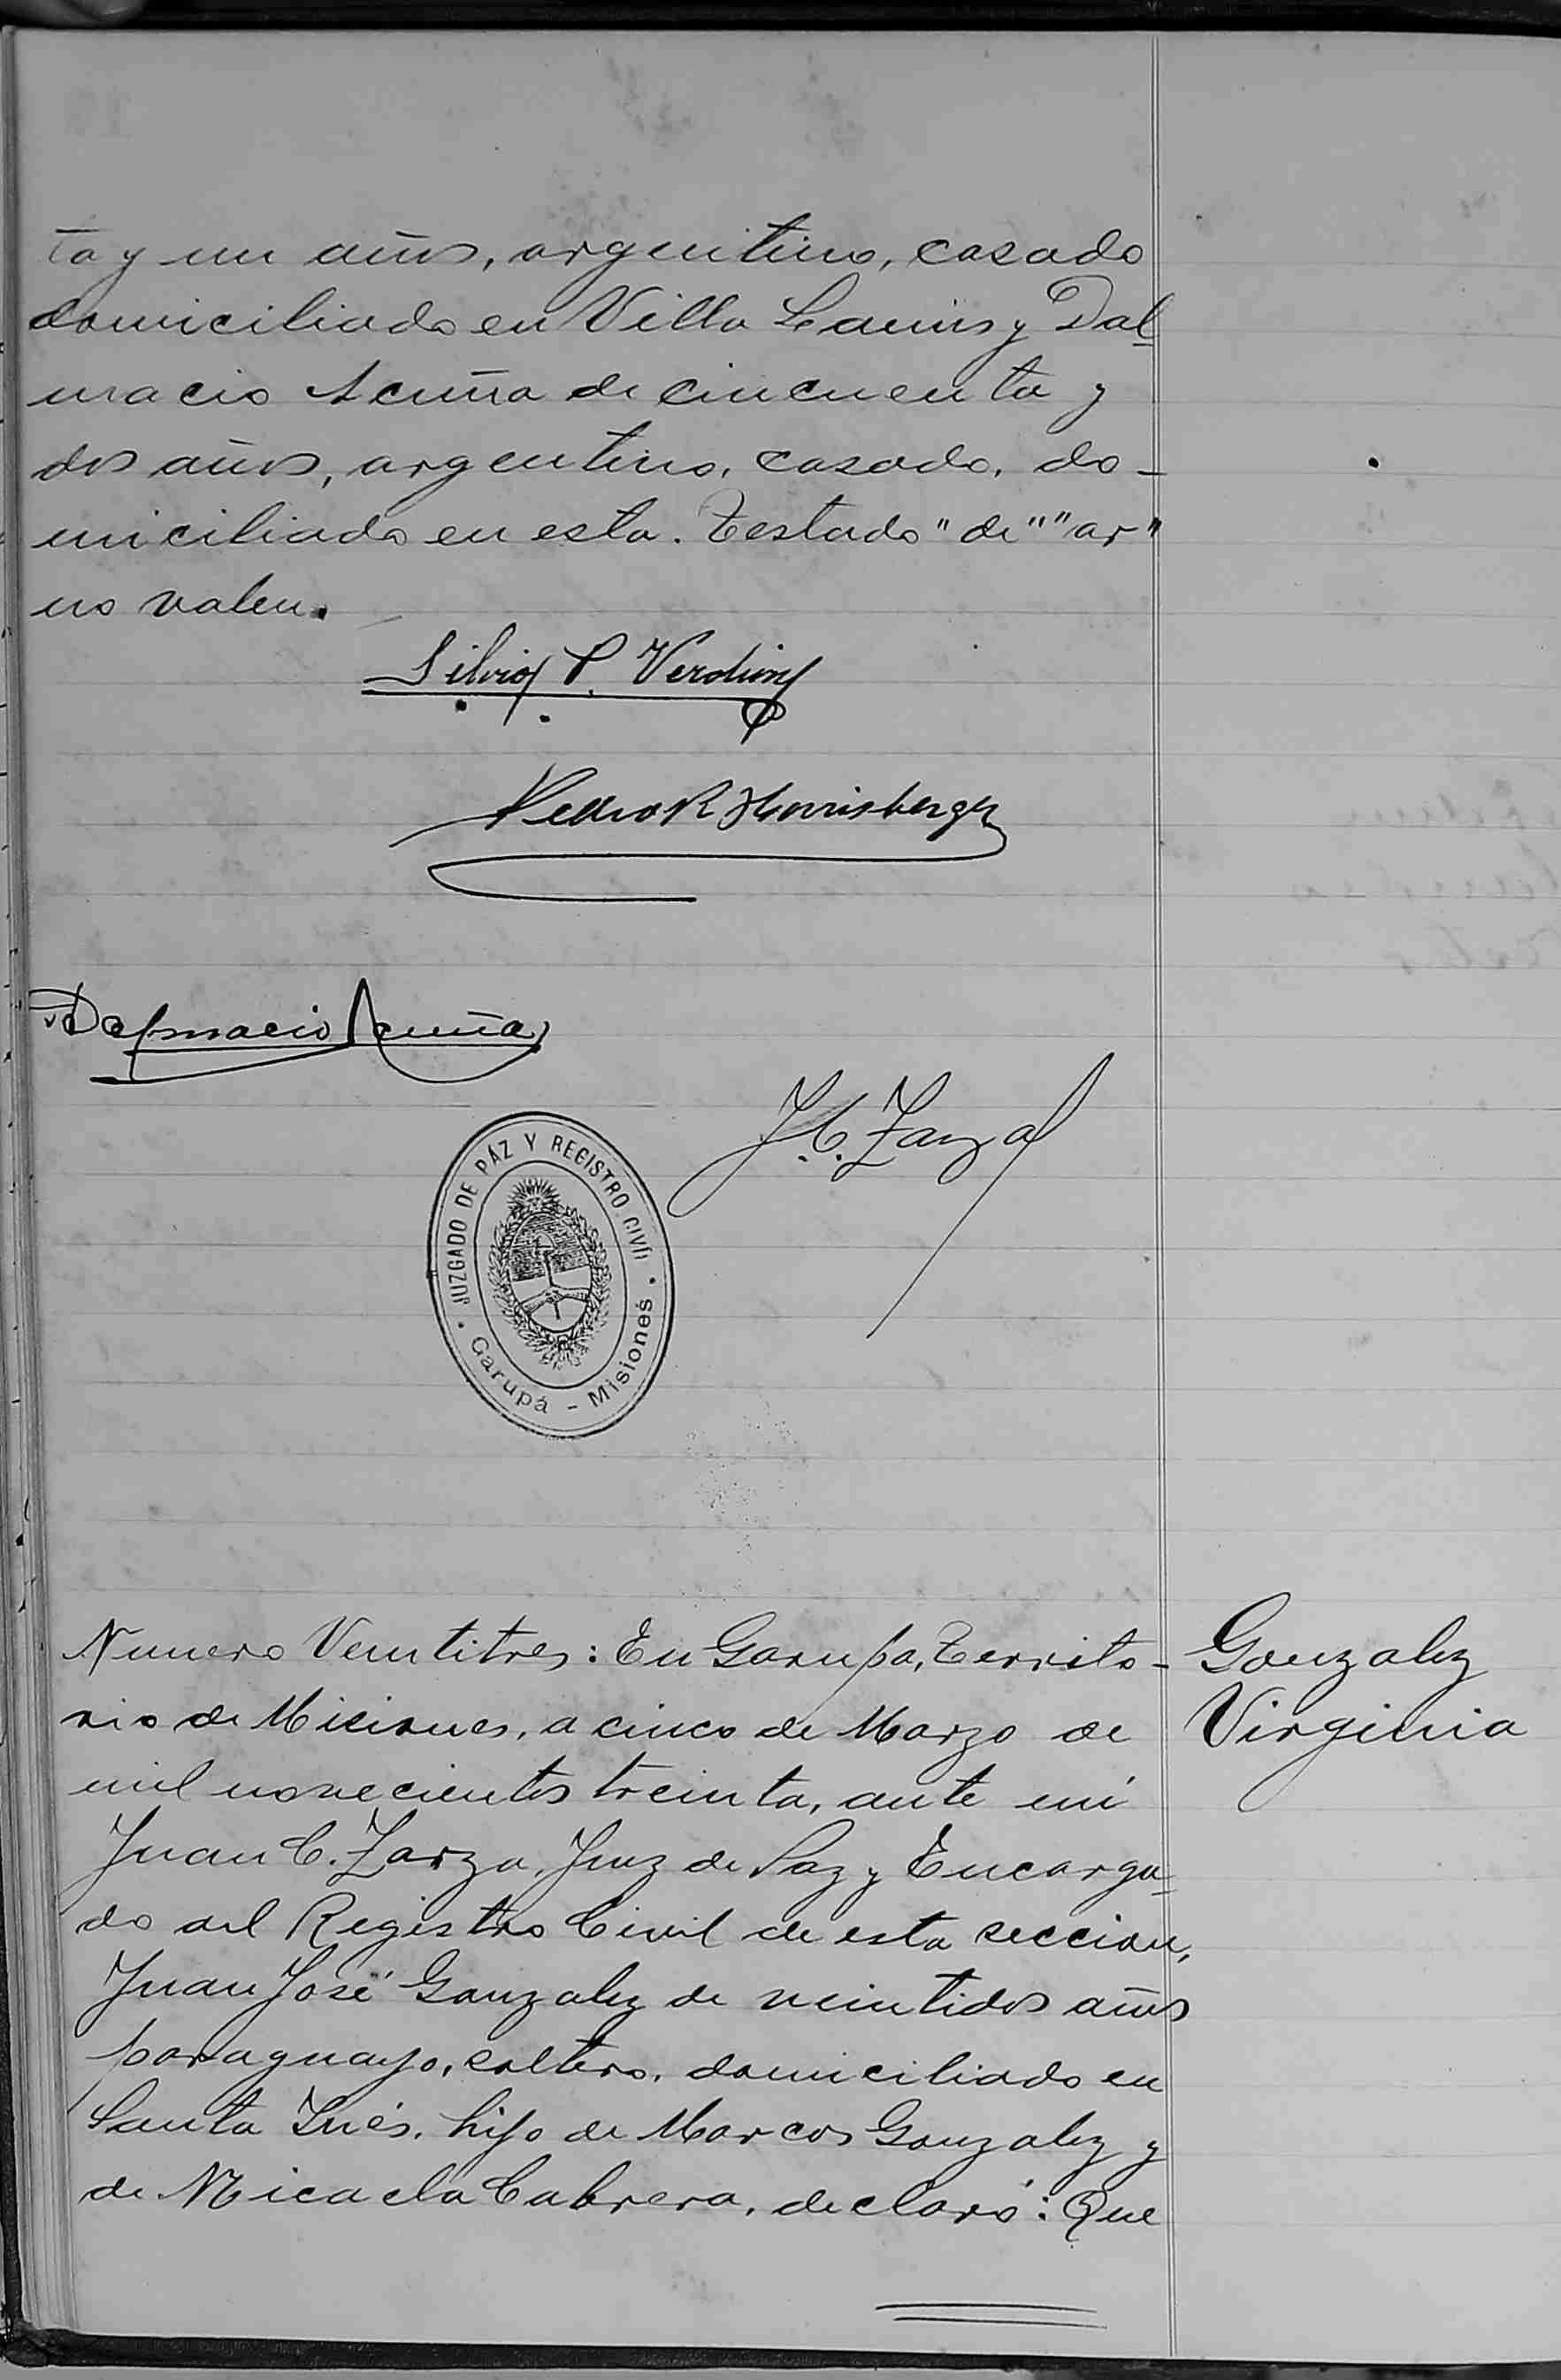 ta y un años, argentino, casado
domiciliado en Villa Lanús y Dal
macio Acuña de cincuenta y
dos años, argentino, casado, do-
miciliado en esta. Testado "de" "ar"
no valen.
Silvio P. Verdun
Pedro R
Dalmacio Acuña
J. C. Zarza
JUZGADO DE PÁZ Y REGISTRO CIVIL
Garupá - Misiones
Numero Veintitres: En Garupa, Territo-
rio de Misiones, a cinco de Marzo de
mil novecientos treinta, ante mi
Juan C. Zarza, Juez de Paz y Encarga
do del Registro Civil de esta seccion,
Juan José Gonzalez de veintidos años
paraguayo, soltero, domiciliado en
Santa Inés, hijo de Marcos Gonzalez y
de Micaela Cabrera, declaró: Que
Gonzalez
Virginia